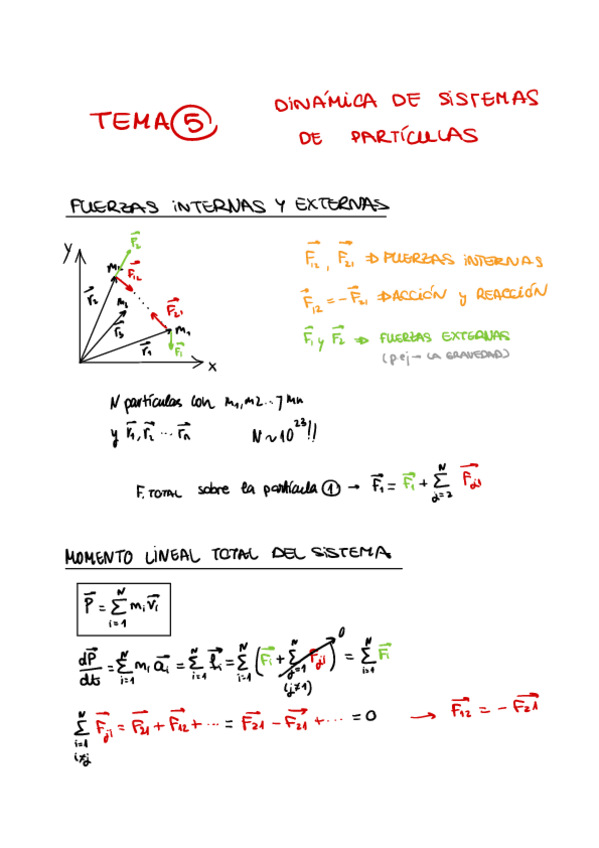 TEMA 5
DINÁMICA DE SISTEMAS
DE PARTÍCULAS
FUERZAS INTERNAS Y EXTERNAS
y
F⃗₂
F⃗₁₂
r⃗₂
F⃗₂₁
r⃗₃
m₁
r⃗₁
F⃗₁
x
F⃗₁₂, F⃗₂₁ ⇒ FUERZAS INTERNAS
F⃗₁₂ = −F⃗₂₁ ⇒ ACCIÓN y REACCIÓN
F⃗₁ y F⃗₂ ⇒ FUERZAS EXTERNAS
(p ej → LA GRAVEDAD)
N partículas con m₁, m₂ ... y mn
y r⃗₁, r⃗₂ ... r⃗n N ~ 10²³!!
F. TOTAL sobre la partícula ① → F⃗₁ = F⃗₁ + ∑_{j=2}^{N} F⃗j₁
MOMENTO LINEAL TOTAL DEL SISTEMA
P⃗ = ∑_{i=1}^{N} mᵢ v⃗ᵢ
dP⃗/dt = ∑_{i=1}^{N} mᵢ a⃗ᵢ = ∑_{i=1}^{N} f⃗ᵢ = ∑_{i=1}^{N} (F⃗ᵢ + ∑_{j=1 (j≠1)}^{N} F⃗jᵢ) 0 = ∑_{i=1}^{N} F⃗ᵢ
∑_{i=1 i≠j}^{N} F⃗jᵢ = F⃗₂₁ + F⃗₁₂ + ... = F⃗₂₁ − F⃗₂₁ + ... = 0 → F⃗₁₂ = −F⃗₂₁